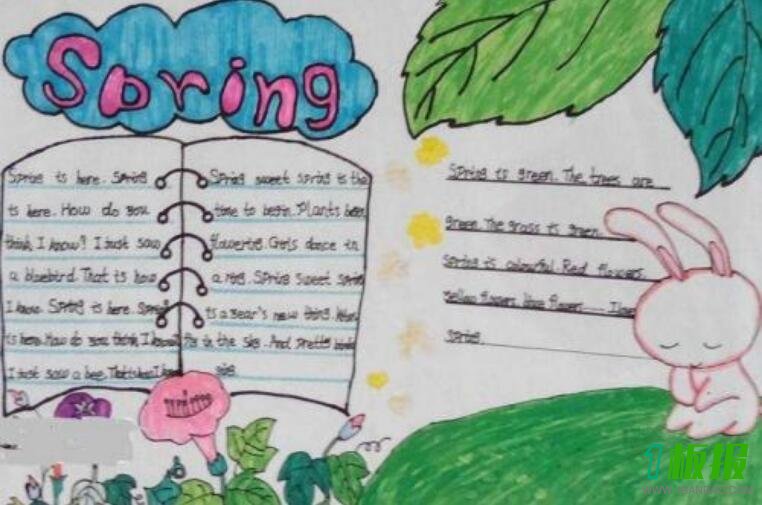 Spring
Spring is here. Spring
is here. How do you
think I know? I just saw
a bluebird. That is how
I know. Spring is here. Spring
is here. How do you think I know
I just saw a bee. That is how I know
Spring sweet spring is the
time to begin. Plants been
flowering. Girls dance in
a ring. Spring sweet spring
is a year's new thing.
in the sky. And pretty birds
sing.
Spring is green. The trees are
green. The grass is green.
Spring is colourful. Red flowers.
Yellow flowers. blue flowers ...... I love
spring.
板报